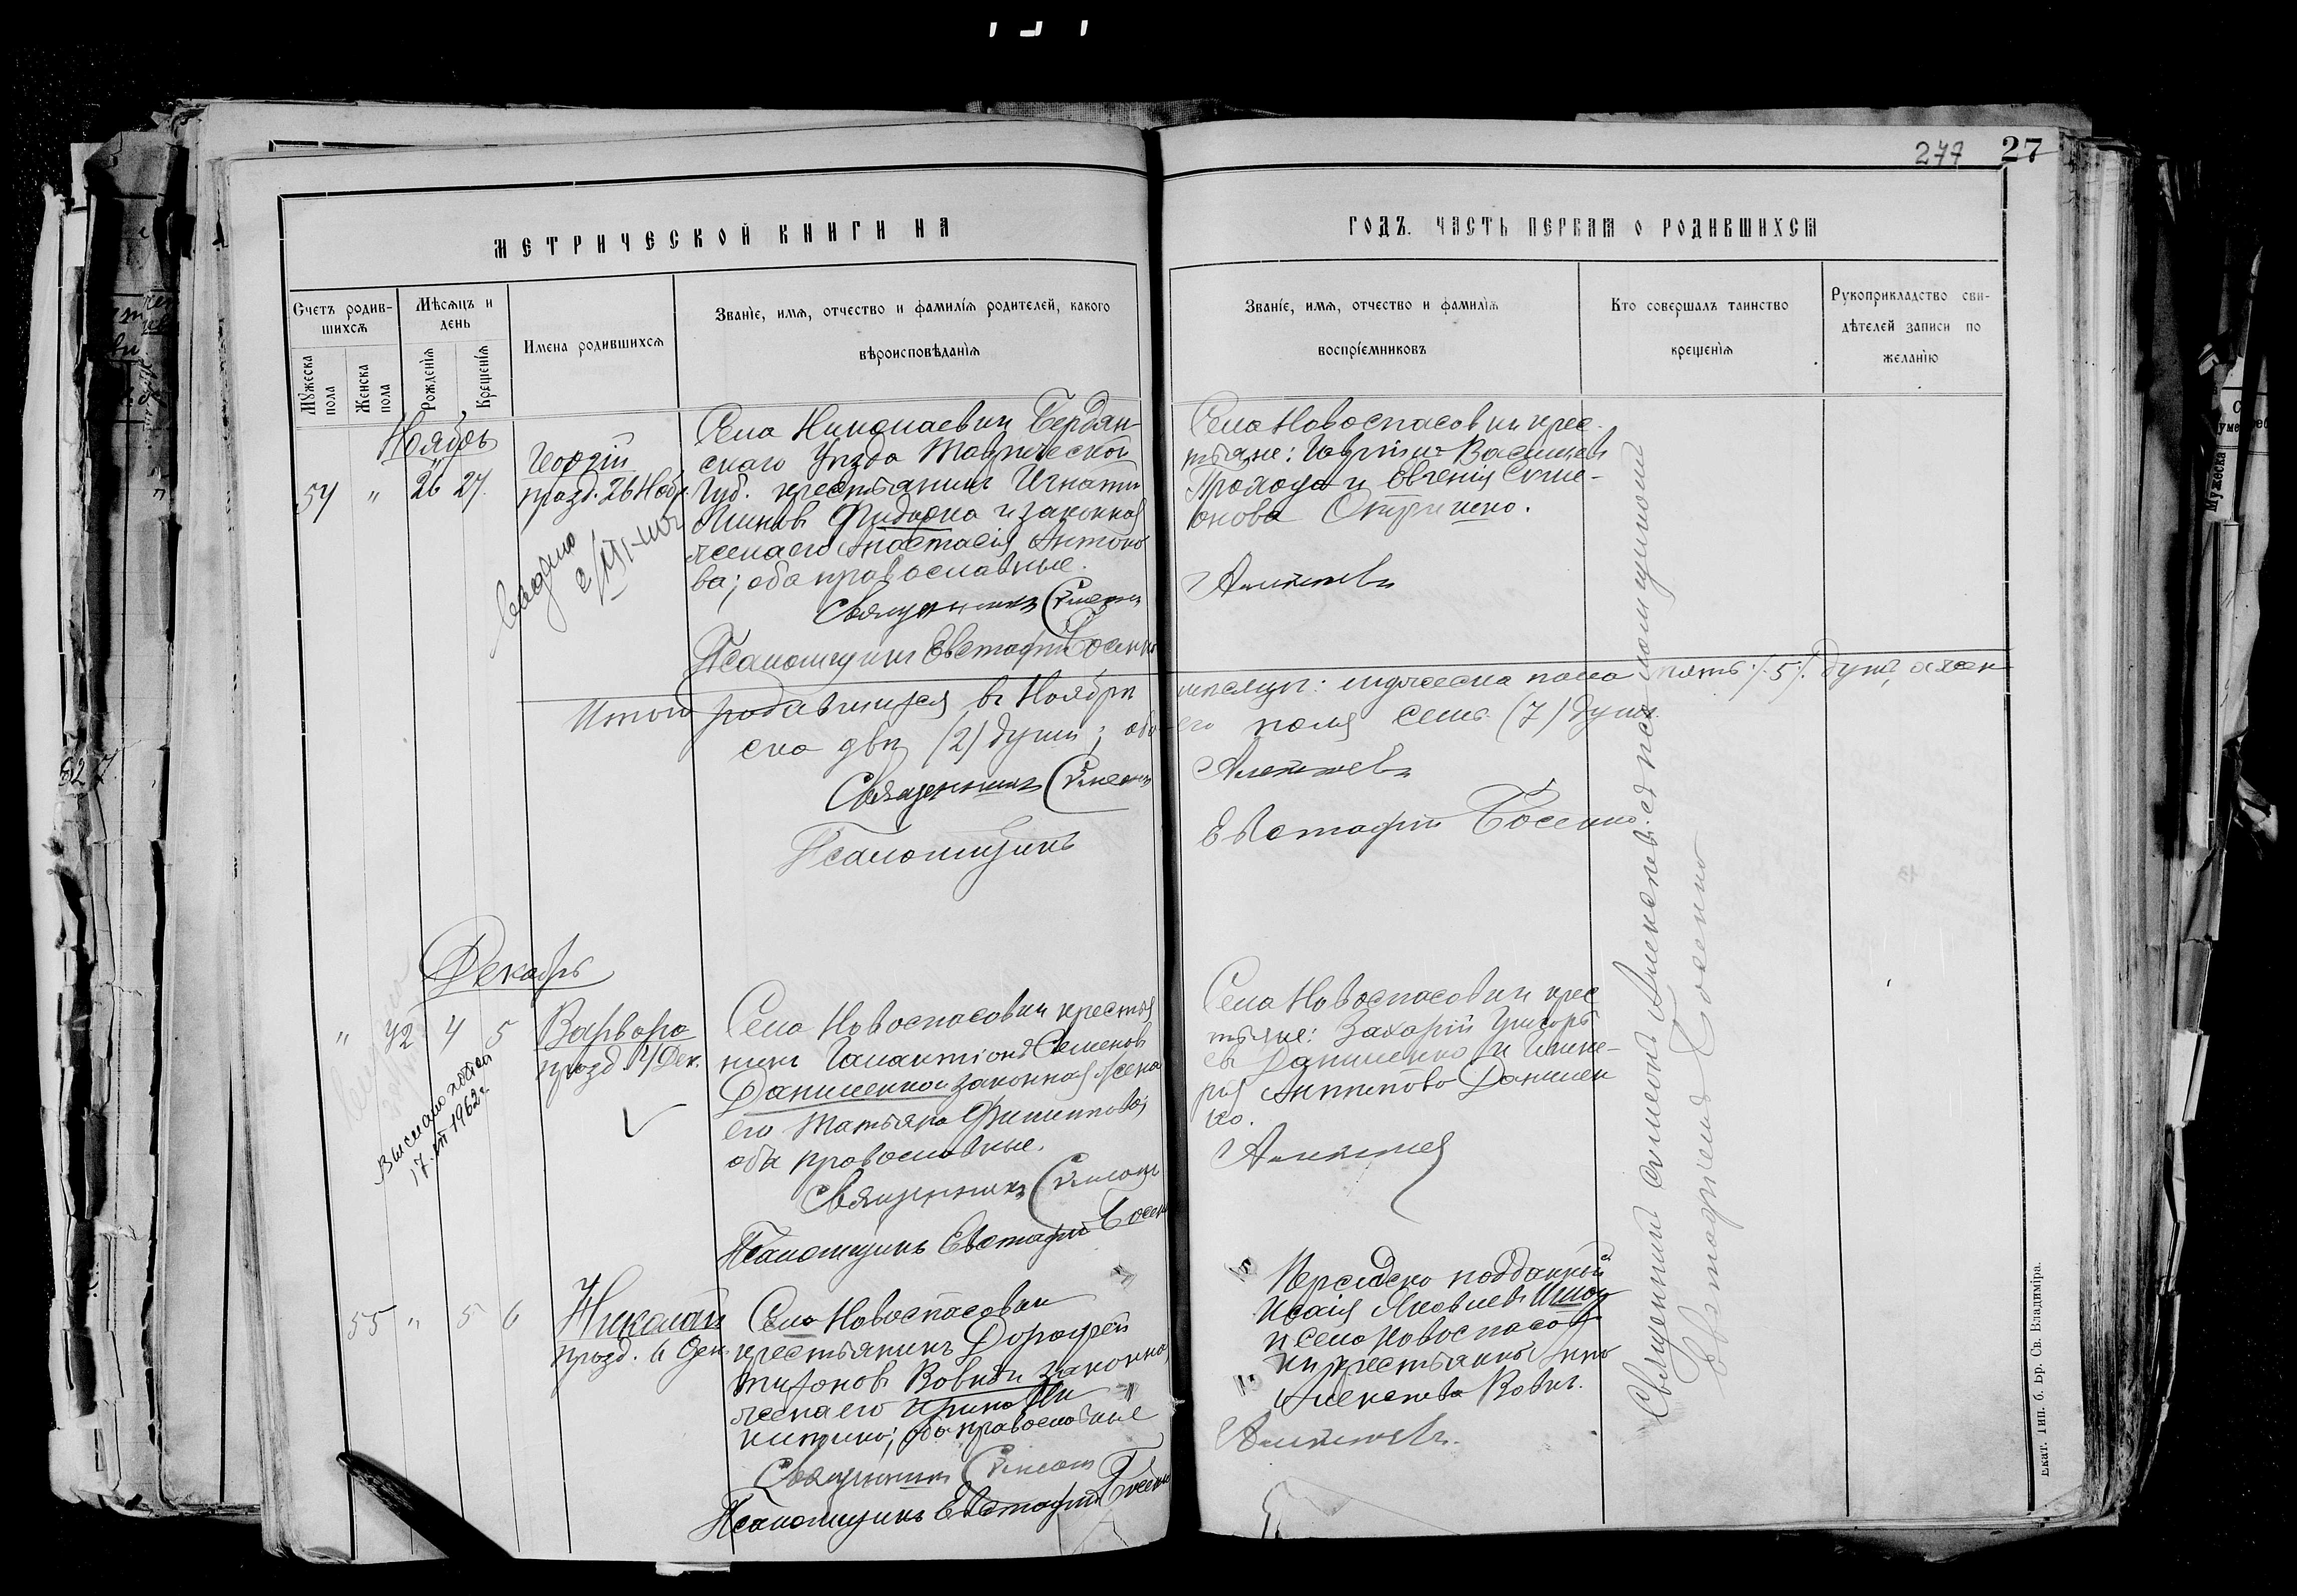 277 27
МЕТРИЧЕСКОЙ КНИГИ НА
ГОДЪ. ЧАСТЬ ПЕРВАЯ О РОДИВШИХСЯ
Счетъ родив-
шихся
Мужеска
пола
Женска
пола
Мѣсяцъ и
день
Рожденія
Крещенія
Имена родившихся
Званіе, имя, отчество и фамилія родителей, какого
вѣроисповѣданія
Званіе, имя, отчество и фамилія
воспріемниковъ
Кто совершалъ таинство
крещенія
Рукоприкладство сви-
дѣтелей записи по
желанію
Ноябрь
54 " 26 27.
Георгій
празд. 26 Нояб.
Села Николаевки Бердян-
скаго Уѣзда Таврической
Губ. крестьянинъ Игнатій
и законная
жена его Анастасія Антоно
ва; оба православные.
Священникъ Симеонъ
Псаломщикъ Евстафій Босенко
Села Новоспасовки крес-
тьяне: Васильевъ
Прохода и Евгенія Симе-
онова
Алексѣевъ
Итого родившихся въ Ноябрѣ мѣсяцѣ: мужеска пола пять /5/ душъ, а жен-
ска двѣ /2/ души; обо-его пола семь (7) душъ.
Священникъ Симеонъ Алексѣевъ
Псаломщикъ Евстафій Босенко
Декабрь
" 42 4 5
Варвара
празд. 4 Дек.
выслано
17.III 1962г.
Села Новоспасовки крестья
нинъ Галактіонъ Семеновъ
Даниленко и законная жена
его Татьяна Филиппова;
оба православные.
Священникъ Симеонъ
Псаломщикъ Евстафій Босенко
Села Новоспасовки крес
тьяне: Захарій Григорь
евъ Даниленко и Глике-
рія Антипова Данилен
ко.
Алексѣевъ
55 " 5 6
Николай
празд. 6 Дек.
Села Новоспасовки
крестьянинъ Дорофей
Тихоновъ Вовкъ и законная
жена его Ирина
оба православные
Священникъ Симеонъ
Псаломщикъ Евстафій Босенко
Персидско подданный
Исаія Яковлевъ
и села Новоспасов
ки крестьянка Анна
Алексѣева Вовкъ.
Алексѣевъ.
Священникъ Симеонъ Алексѣевъ съ псаломщикомъ
Евстафіемъ Босенко
Екат. Тип. б. Бр. Св. Владиміра.